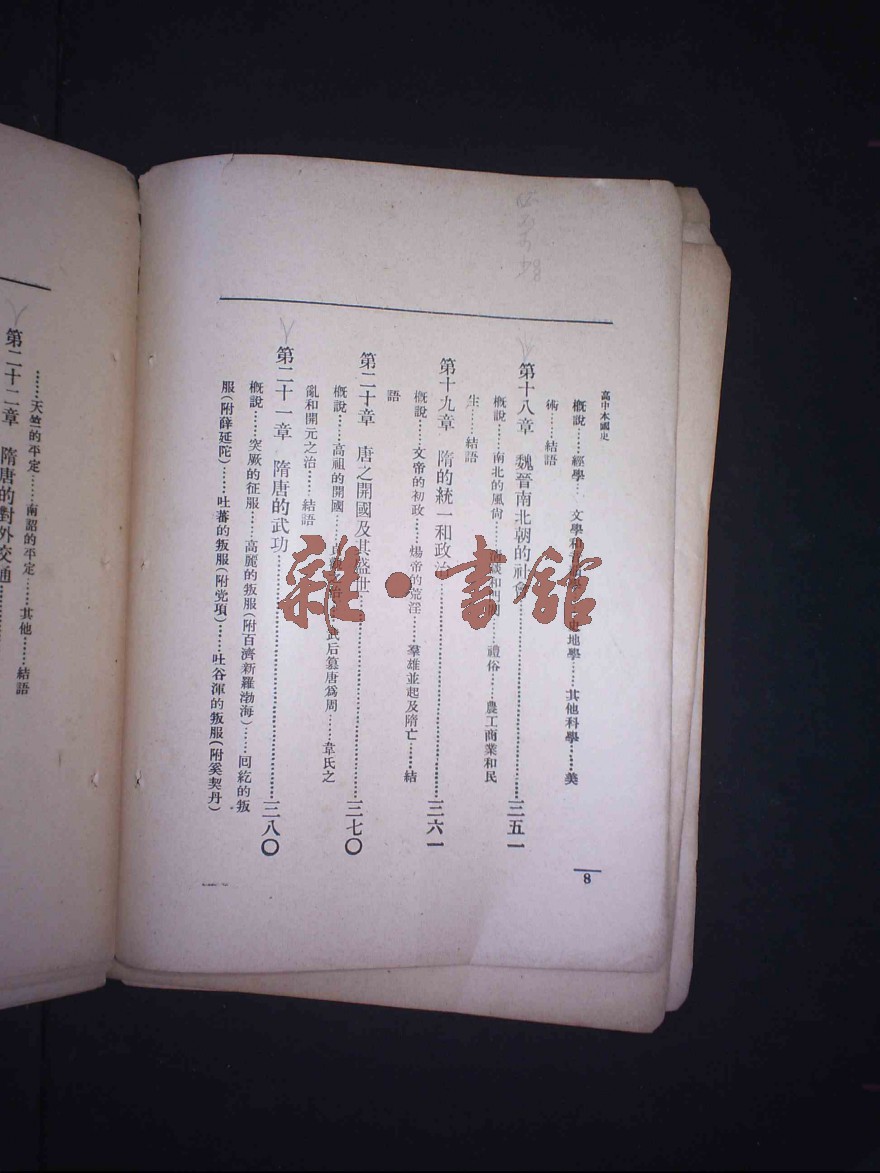 高中本國史
概說……經學……文學和……史地學……其他科學……美
術……結語
第十八章　魏晉南北朝的社會……三五一
概說……南北的風尙……禮俗……農工商業和民
生……結語
第十九章　隋的統一和政治……三六一
概說……文帝的初政……煬帝的荒淫……羣雄並起及隋亡……結
語
第二十章　唐之開國及其盛世……三七〇
概說……高祖的開國……武后篡唐爲周……韋氏之
亂和開元之治……結語
第二十一章　隋唐的武功……三八〇
概說……突厥的征服……高麗的叛服(附百濟新羅渤海)……回紇的叛
服(附薛延陀)……吐蕃的叛服(附党項)……吐谷渾的叛服(附奚契丹)
8
……天竺的平定……南詔的平定……其他……結語
第二十二章　隋唐的對外交通……
雜·書館